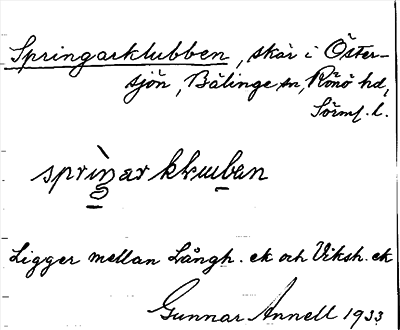 Springarklubben, skär i Öster-
sjön, Bälinge sn, Rönö hd,
Sörml. l.
Ligger mellan Långh. ek och Viksh. ek
Gunnar Annell 1933